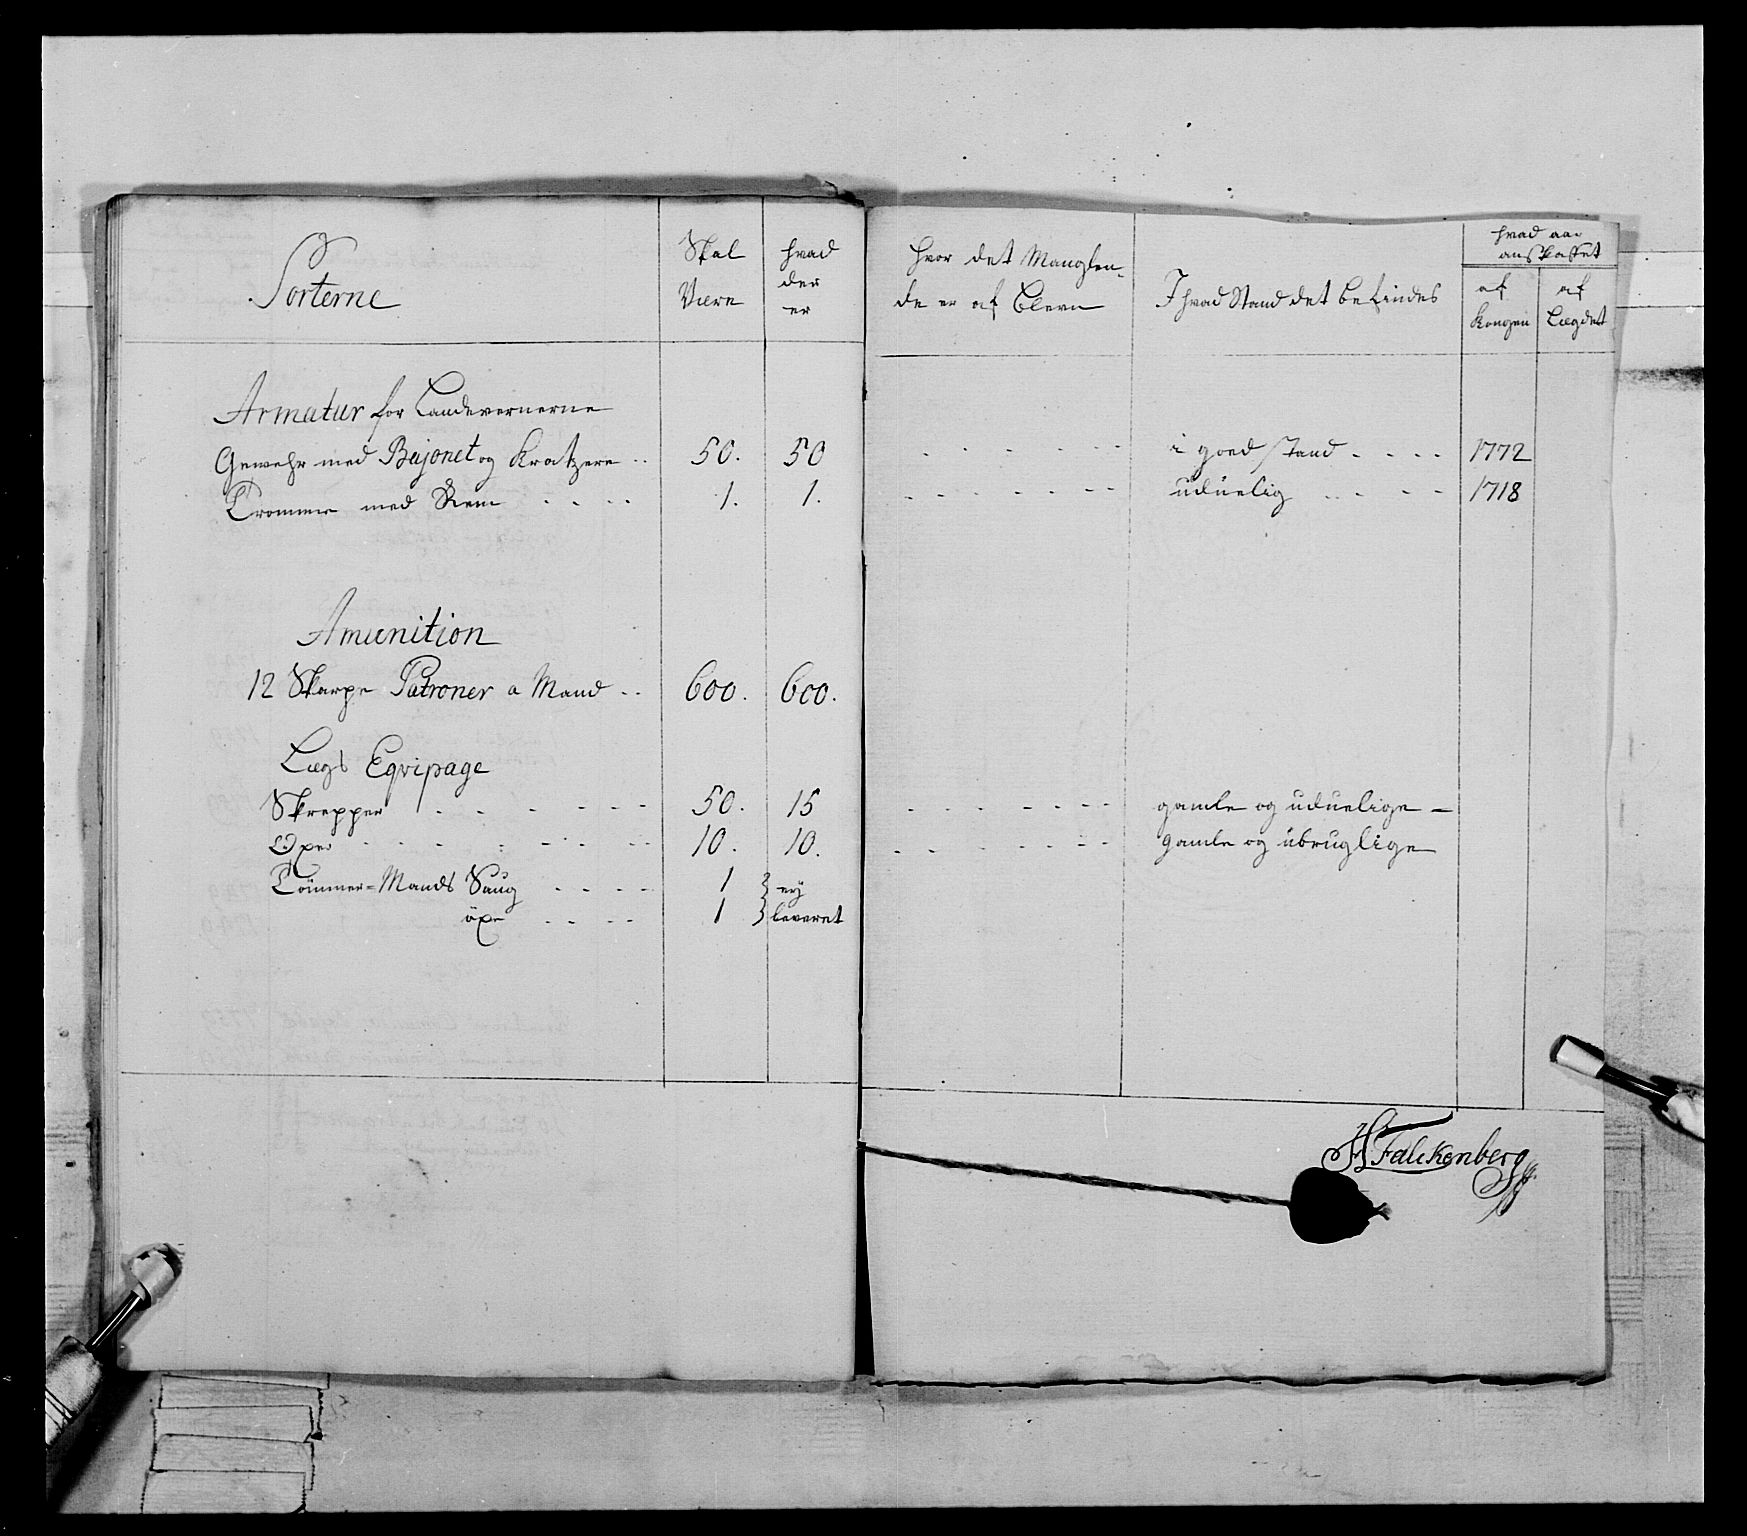 Sorterne | Skal Være | hvad der er | hvor det Manglen- de er af bleven | I hvad Stand det befindes | hvad aar anskaffet | af Kongen | af Lægdet
Armatur for Landevernerne
Gewehr med Bajonet og Kratzere | 50. | 50 | i goed stand | 1772
Trommer med Rem | 1. | 1. | uduelig | 1718
Amunition
12 Skarpe Patroner a Mand | 600. | 600.
Lægs Eqvipage
Skrepper | 50. | 15 | gamle og uduelige
Øxer | 10. | 10. | gamle og ubruglige
Tømmer=Mands Saug | 1 | ey
öxe | 1 | leveret
H Falckenberg